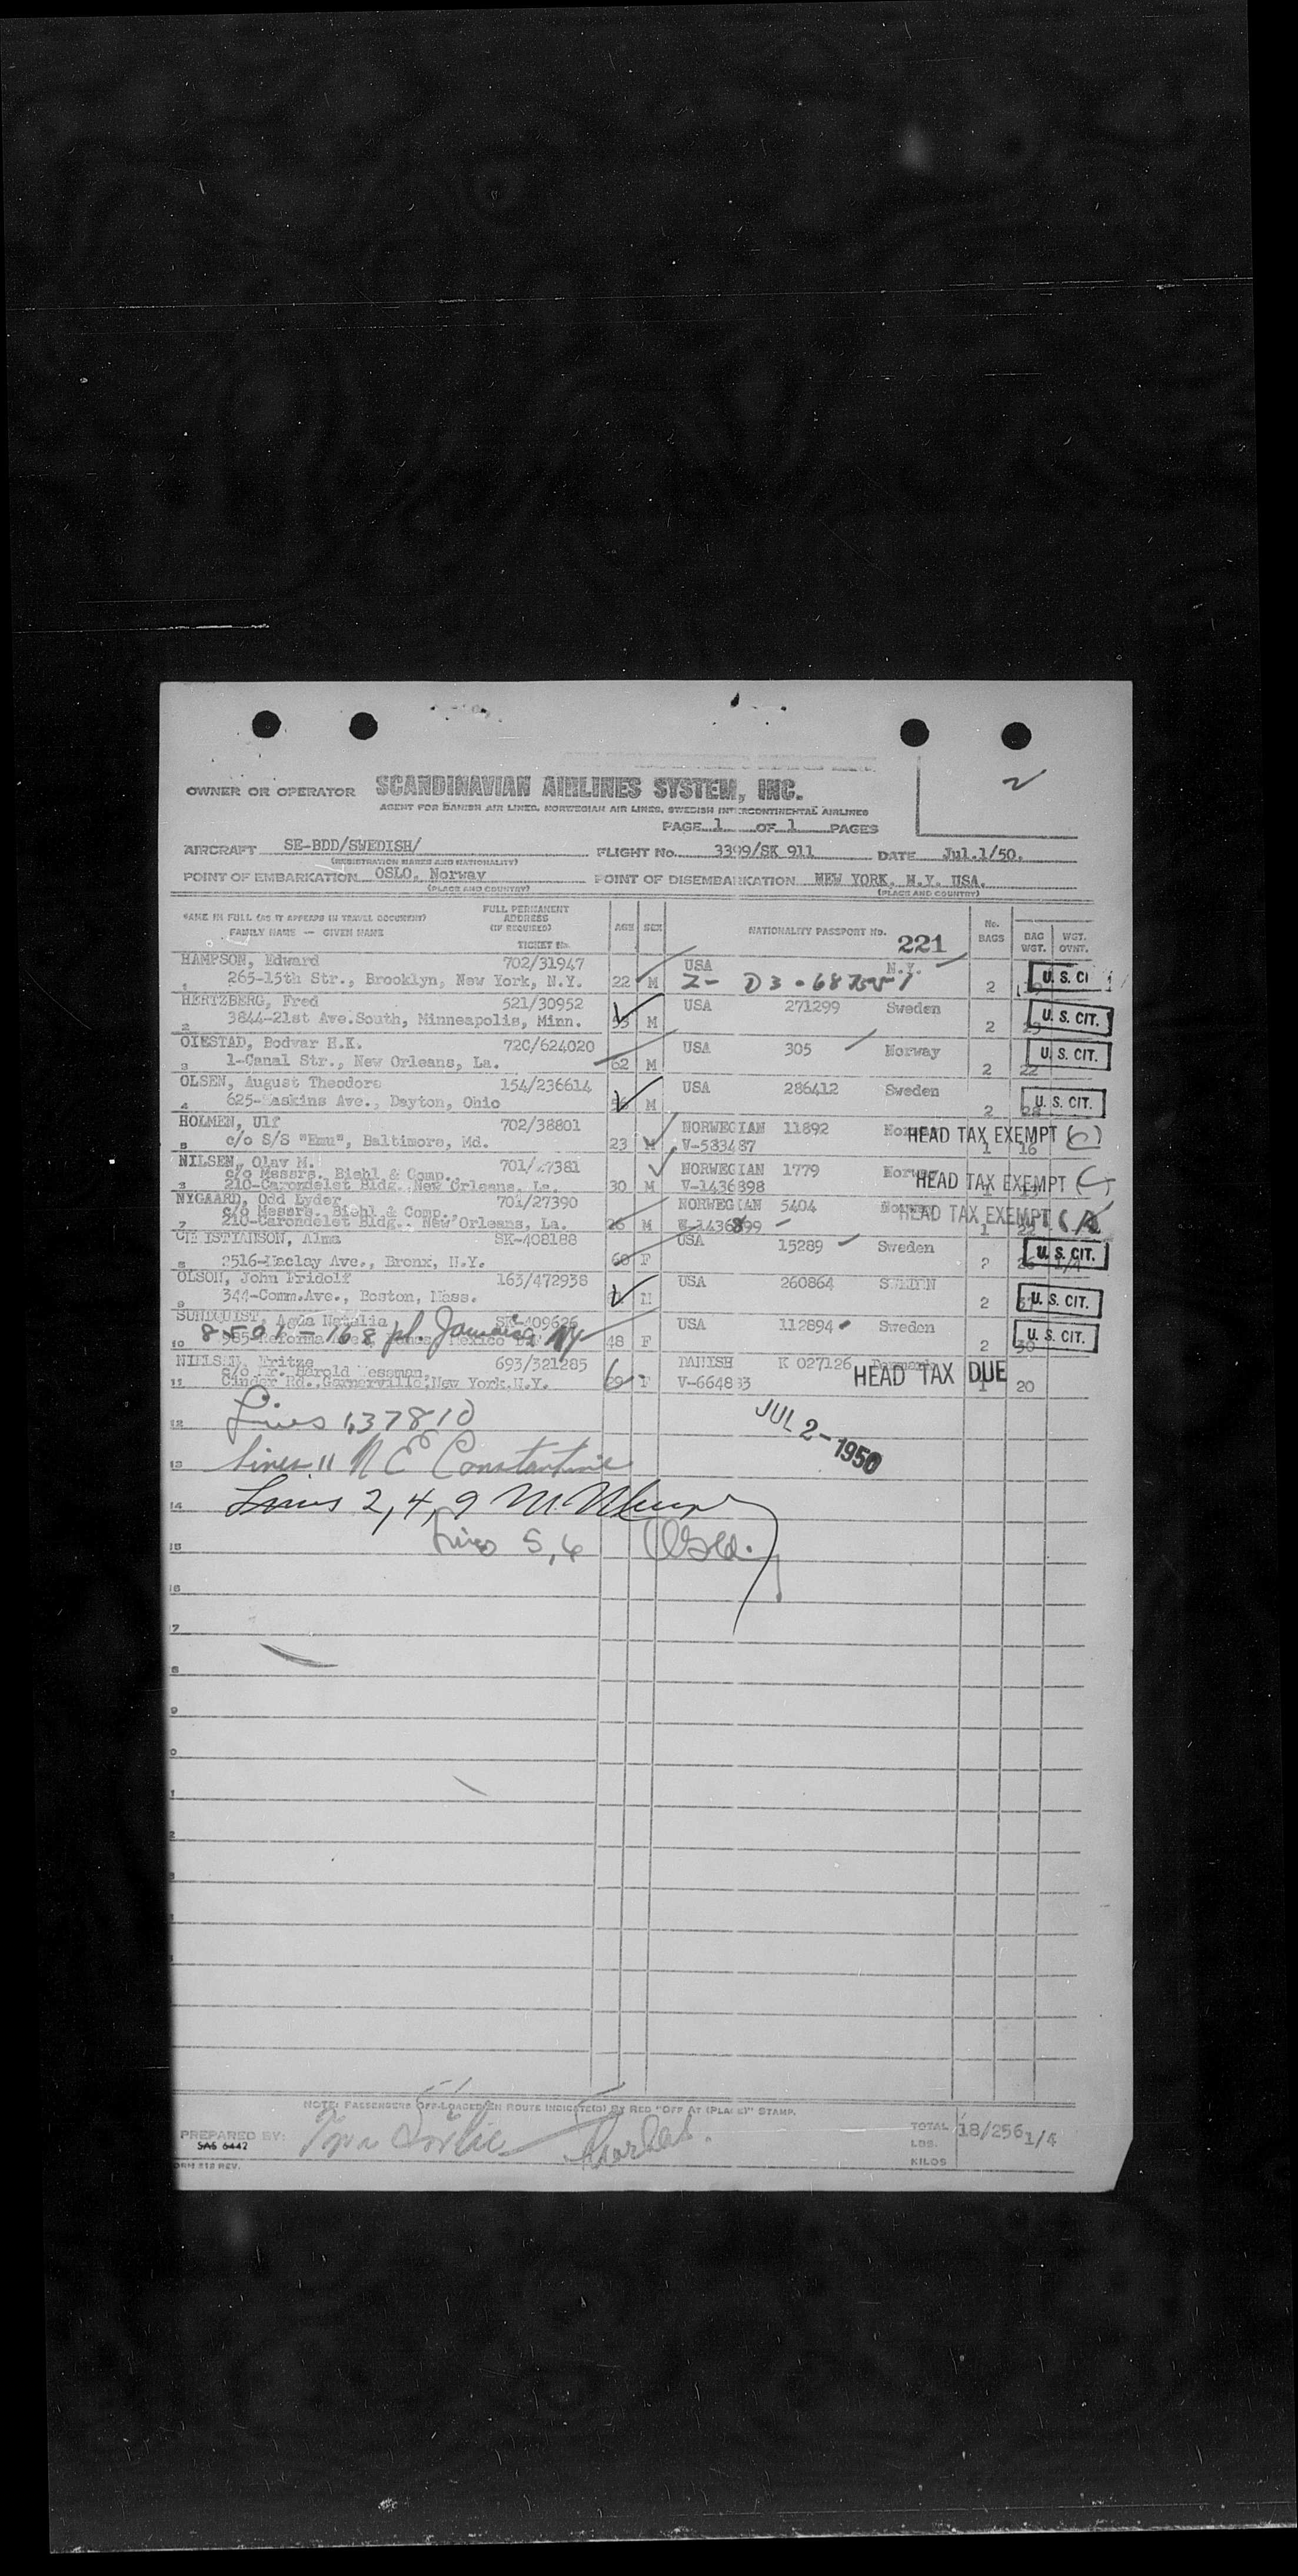 2
OWNER OR OPERATOR SCANDINAVIAN AIRLINES SYSTEM, INC.
AGENT FOR DANISH AIR LINES, NORWEGIAN AIR LINES, SWEDISH INTERCONTINENTAL AIRLINES
PAGE 1 OF 1 PAGES
AIRCRAFT SE-BDD/SWEDISH/ FLIGHT No. 3399/SK 911 DATE Jul.1/50.
(REGISTRATION MARKS AND NATIONALITY)
POINT OF EMBARKATION OSLO, Norway POINT OF DISEMBARKATION NEW YORK, N.Y. USA.
(PLACE AND COUNTRY) (PLACE AND COUNTRY)
NAME IN FULL (AS IT APPEARS IN TRAVEL DOCUMENT) FULL PERMANENT ADDRESS (IF REQUIRED) AGE SEX NATIONALITY PASSPORT No. No. BAGS BAG WGT. WGT. OVNT.
FAMILY NAME — GIVEN NAME TICKET No. 221
HAMPSON, Edward 702/31947 USA N.Y.
1 265-15th Str., Brooklyn, New York, N.Y. 22 M 2 U. S. CI
HERTZBERG, Fred 521/30952 USA 271299 Sweden
2 3844-21st Ave.South, Minneapolis, Minn. 55 M 2 U. S. CIT.
OIESTAD, Bodvar H.K. 720/624020 USA 305 Norway
3 1-Canal Str., New Orleans, La. 62 M 2 22 U. S. CIT.
OLSEN, August Theodore 154/236614 USA 286412 Sweden
4 625-Haskins Ave., Dayton, Ohio M 2 U. S. CIT.
HOLMEN, Ulf 702/38801 NORWEGIAN 11892 Norway HEAD TAX EXEMPT
5 c/o S/S "Emu", Baltimore, Md. 23 M V-533487 1 16
NILSEN, Olav M. 701/27381 NORWEGIAN 1779 Norway HEAD TAX EXEMPT
c/o Messrs. Biehl & Comp.
210-Carondelet Bldg. New Orleans, La. 30 M V-1436898 1
NYGAARD, Odd Lyder 701/27390 NORWEGIAN 5404 Norway HEAD TAX EXEMPT
c/o Messrs. Biehl & Comp.,
7 210-Carondelet Bldg., New Orleans, La. 26 M V-1436899 1 22
CHRISTIANSON, Alma SK-408188 USA 15289 Sweden
8 2516-Maclay Ave., Bronx, N.Y. 60 F 2 U. S. CIT.
OLSON, John Fridolf 163/472938 USA 260864 SWEDEN
9 344-Comm.Ave., Boston, Mass. M 2 U. S. CIT.
SUNDQUIST, Agda Natalia SK-409626 USA 112894 Sweden
168 pl. Jamaica NY
10 985-Reforma Mexico 48 F 2 30 U. S. CIT.
NIELSEN, Fritze 693/321285 DANISH K 027126 Denmark HEAD TAX DUE
c/o Mr. Harold Wessman,
11 Cinder Rd., Garnerville, New York, N.Y. 69 F V-664833 1 20
12 Lines 1,3 7 8 10
JUL 2-1950
13 Lines 11 N E Constantine
14 Lines 2, 4, 9
15 Lines 5, 6
16
NOTE: PASSENGERS OFF-LOADED EN ROUTE INDICATE(D) BY RED "OFF AT (PLACE)" STAMP.
PREPARED BY:
SAS 6442
TOTAL 18/256 1/4
LBS.
KILOS
FORM 818 REV.